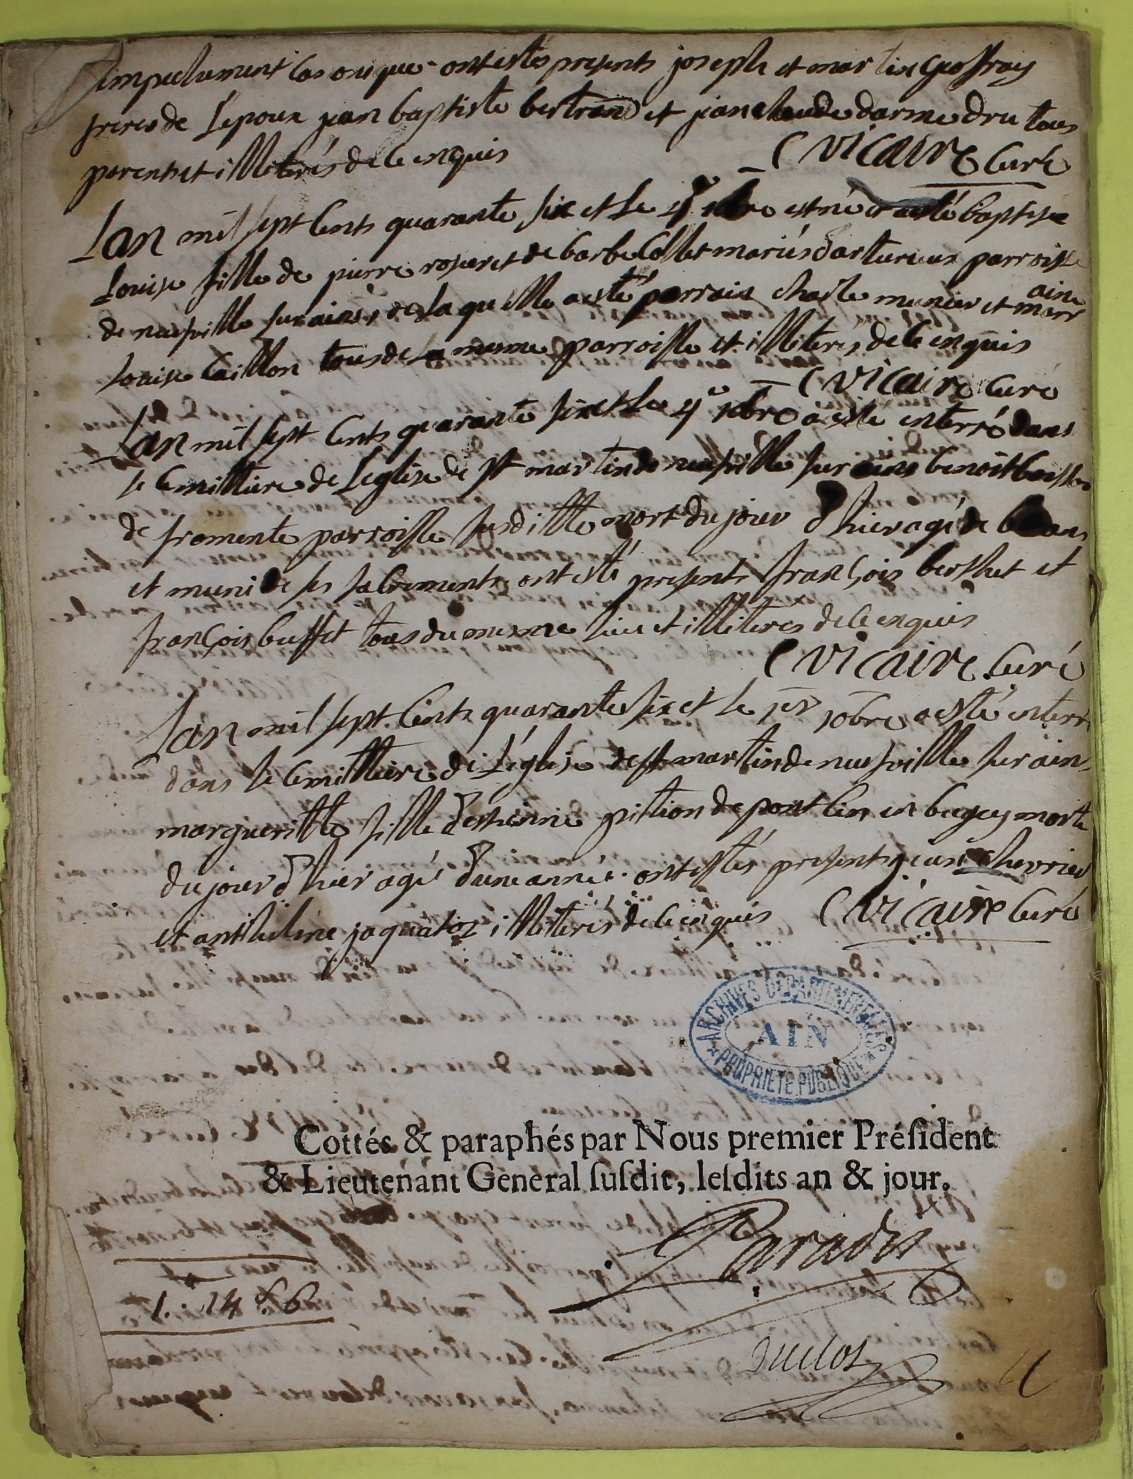 ont estés presents joseph et martin geoffray
freres de L'époux jean baptiste bertrand et jean claude darmedru tous
parents et illiterés de ce enquis C vicaire Curé
Lan mil sept Cents quarante six et Le 4e xbre est né et a esté baptisé
Louise fille de pierre et de barbe Collet mariés parroisse
de neufville sur ains de la quelle a esté parrain charle munier et marraine
Louise Caillon tous de la mesme parroisse et illiterés de ce enquis
C vicaire Curé
Lan mil sept Cents quarante six et Le 4e xbre a esté interré dans
le Cemittiere de Leglise de st martin de neufville sur ains benoit
de fromente parroisse susditte mort du jour d'hier agé de ans
et muni de ses sacrements ont esté presents françois berthet et
françois buffet tous du mesme lieu et illiterés de ce enquis
C vicaire Curé
Lan mil sept Cents quarante six et le 10bre a esté interré
dans le Cemittiere de L'églize de st martin de neufville sur ain
margueritte fille d'estienne pittion de pont Cin en bugey morte
du jour d'hier agé d'une année ont estés presents jean chevrier
et anthelme jaquatoz illiterés de ce enquis C vicaire Curé
ARCHIVES DÉPARTEMENTALES
AIN
PROPRIÉTÉ PUBLIQUE
Cottés & paraphés par Nous premier Préſident
& Lieutenant General ſuſdit, leſdits an & jour.
Paradis
1. 14 s 6
Duclos